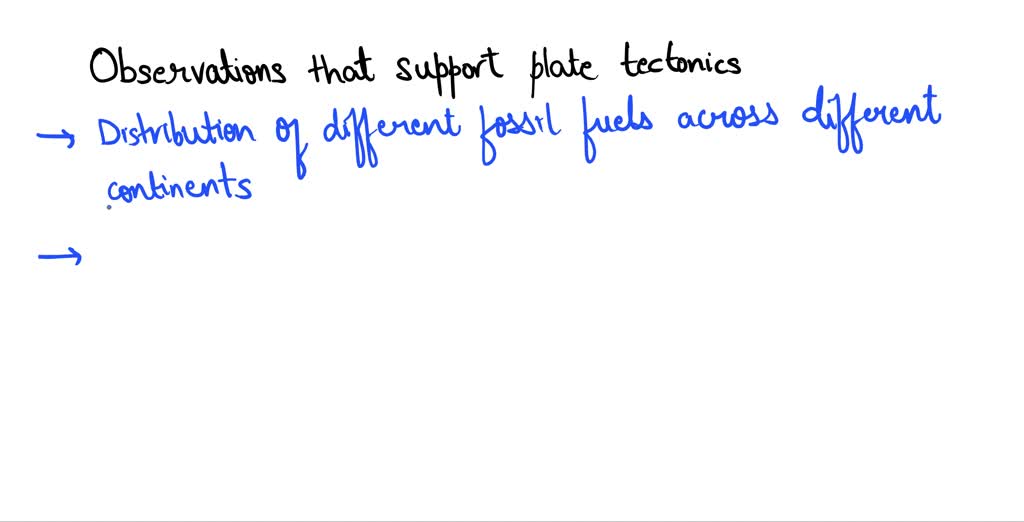 Observations that support plate tectonics
→ Distribution of different fossil fuels across different
continents
→